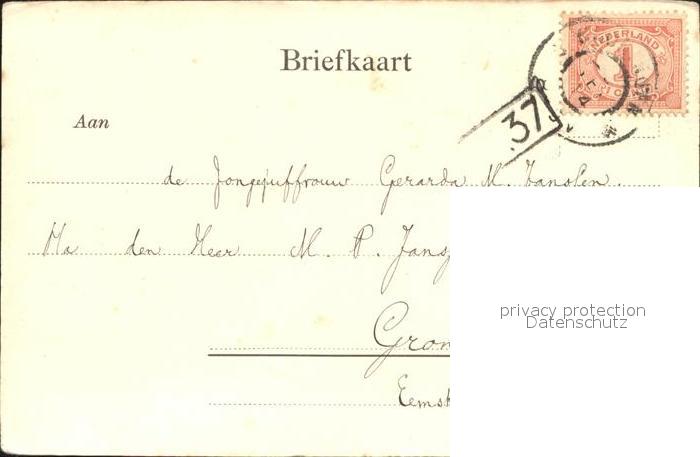 Briefkaart
NEDERLAND
1
37
Aan
de Jongejuffrouw Gerarda M. Janssen.
den Heer M. P. Jans
Gron
Eemsk
privacy protection
Datenschutz